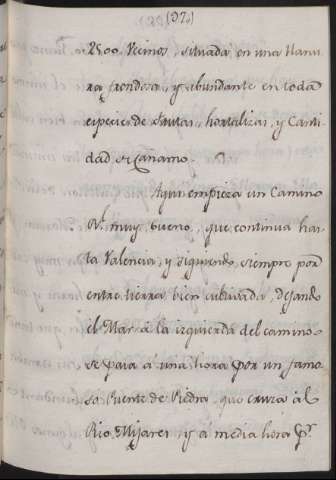 (37.)
2500 Vecinos, situada en una llanu
ra frondosa, y abundante en toda
especie de frutas, hortalizas, y Canti
dad de Cañamo.
Aqui empieza un Camino
Rl. muy bueno, que continua has
ta Valencia, y siguiendo siempre por
entre tierra bien cultivada, dejando
el Mar à la izquierda del camino
se pasa á una hora por un famo
so Puente de Piedra, que cruza àl
Rio Mijares y á media hora pr.